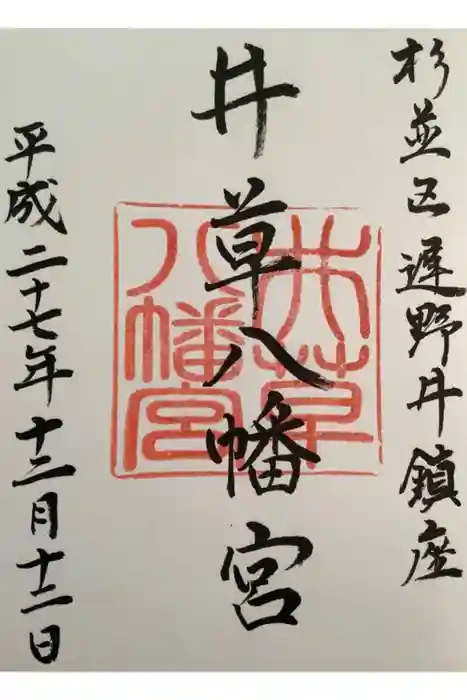 杉並区遅野井鎮座
井草八幡宮
井草
八幡宮
平成二十七年十二月十二日